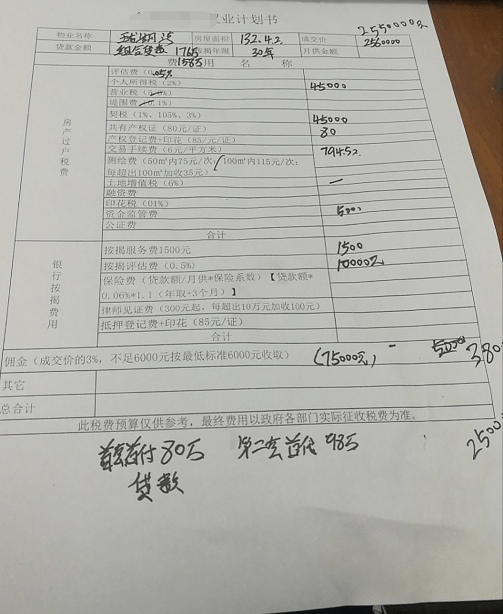 业计划书
2550000元
物业名称 房屋面积 132.42 成交价 2560000
贷款金额 组合贷款 176万 按揭年限 30年 月供金额
158万
费 用 名 称
房产过户税费
评估费(0.05%)
个人所得税(2%) 45000
营业税
堤围费 .1%)
契税(1%、105%、3%) 45000
共有产权证(80元/证) 80
产权登记费+印花(85/元/证)
交易手续费(6元/平方米) 794.52
测绘费(50m²内75元/次)(100m²内115元/次;
每超出100m²加收35元)
土地增值税(6%) —
融资费
印花税(01%)
资金监管费 500
公证费
合计
银行按揭费用
按揭服务费1500元 1500
按揭评估费(0.5%) 10000元
保险费(贷款额/月供*保险系数)【贷款额*
0.06%*1.1(年取+3个月)】
律师见证费(300元起,每超出10万元加收100元)
抵押登记费+印花(85元/证)
合计
佣金(成交价的3%,不足6000元按最低标准6000元收取) (75000元) 50000 380
其它
总合计
此税费预算仅供参考,最终费用以政府各部门实际征收税费为准。
2500
首套首付80万 第二套首付98万
贷款